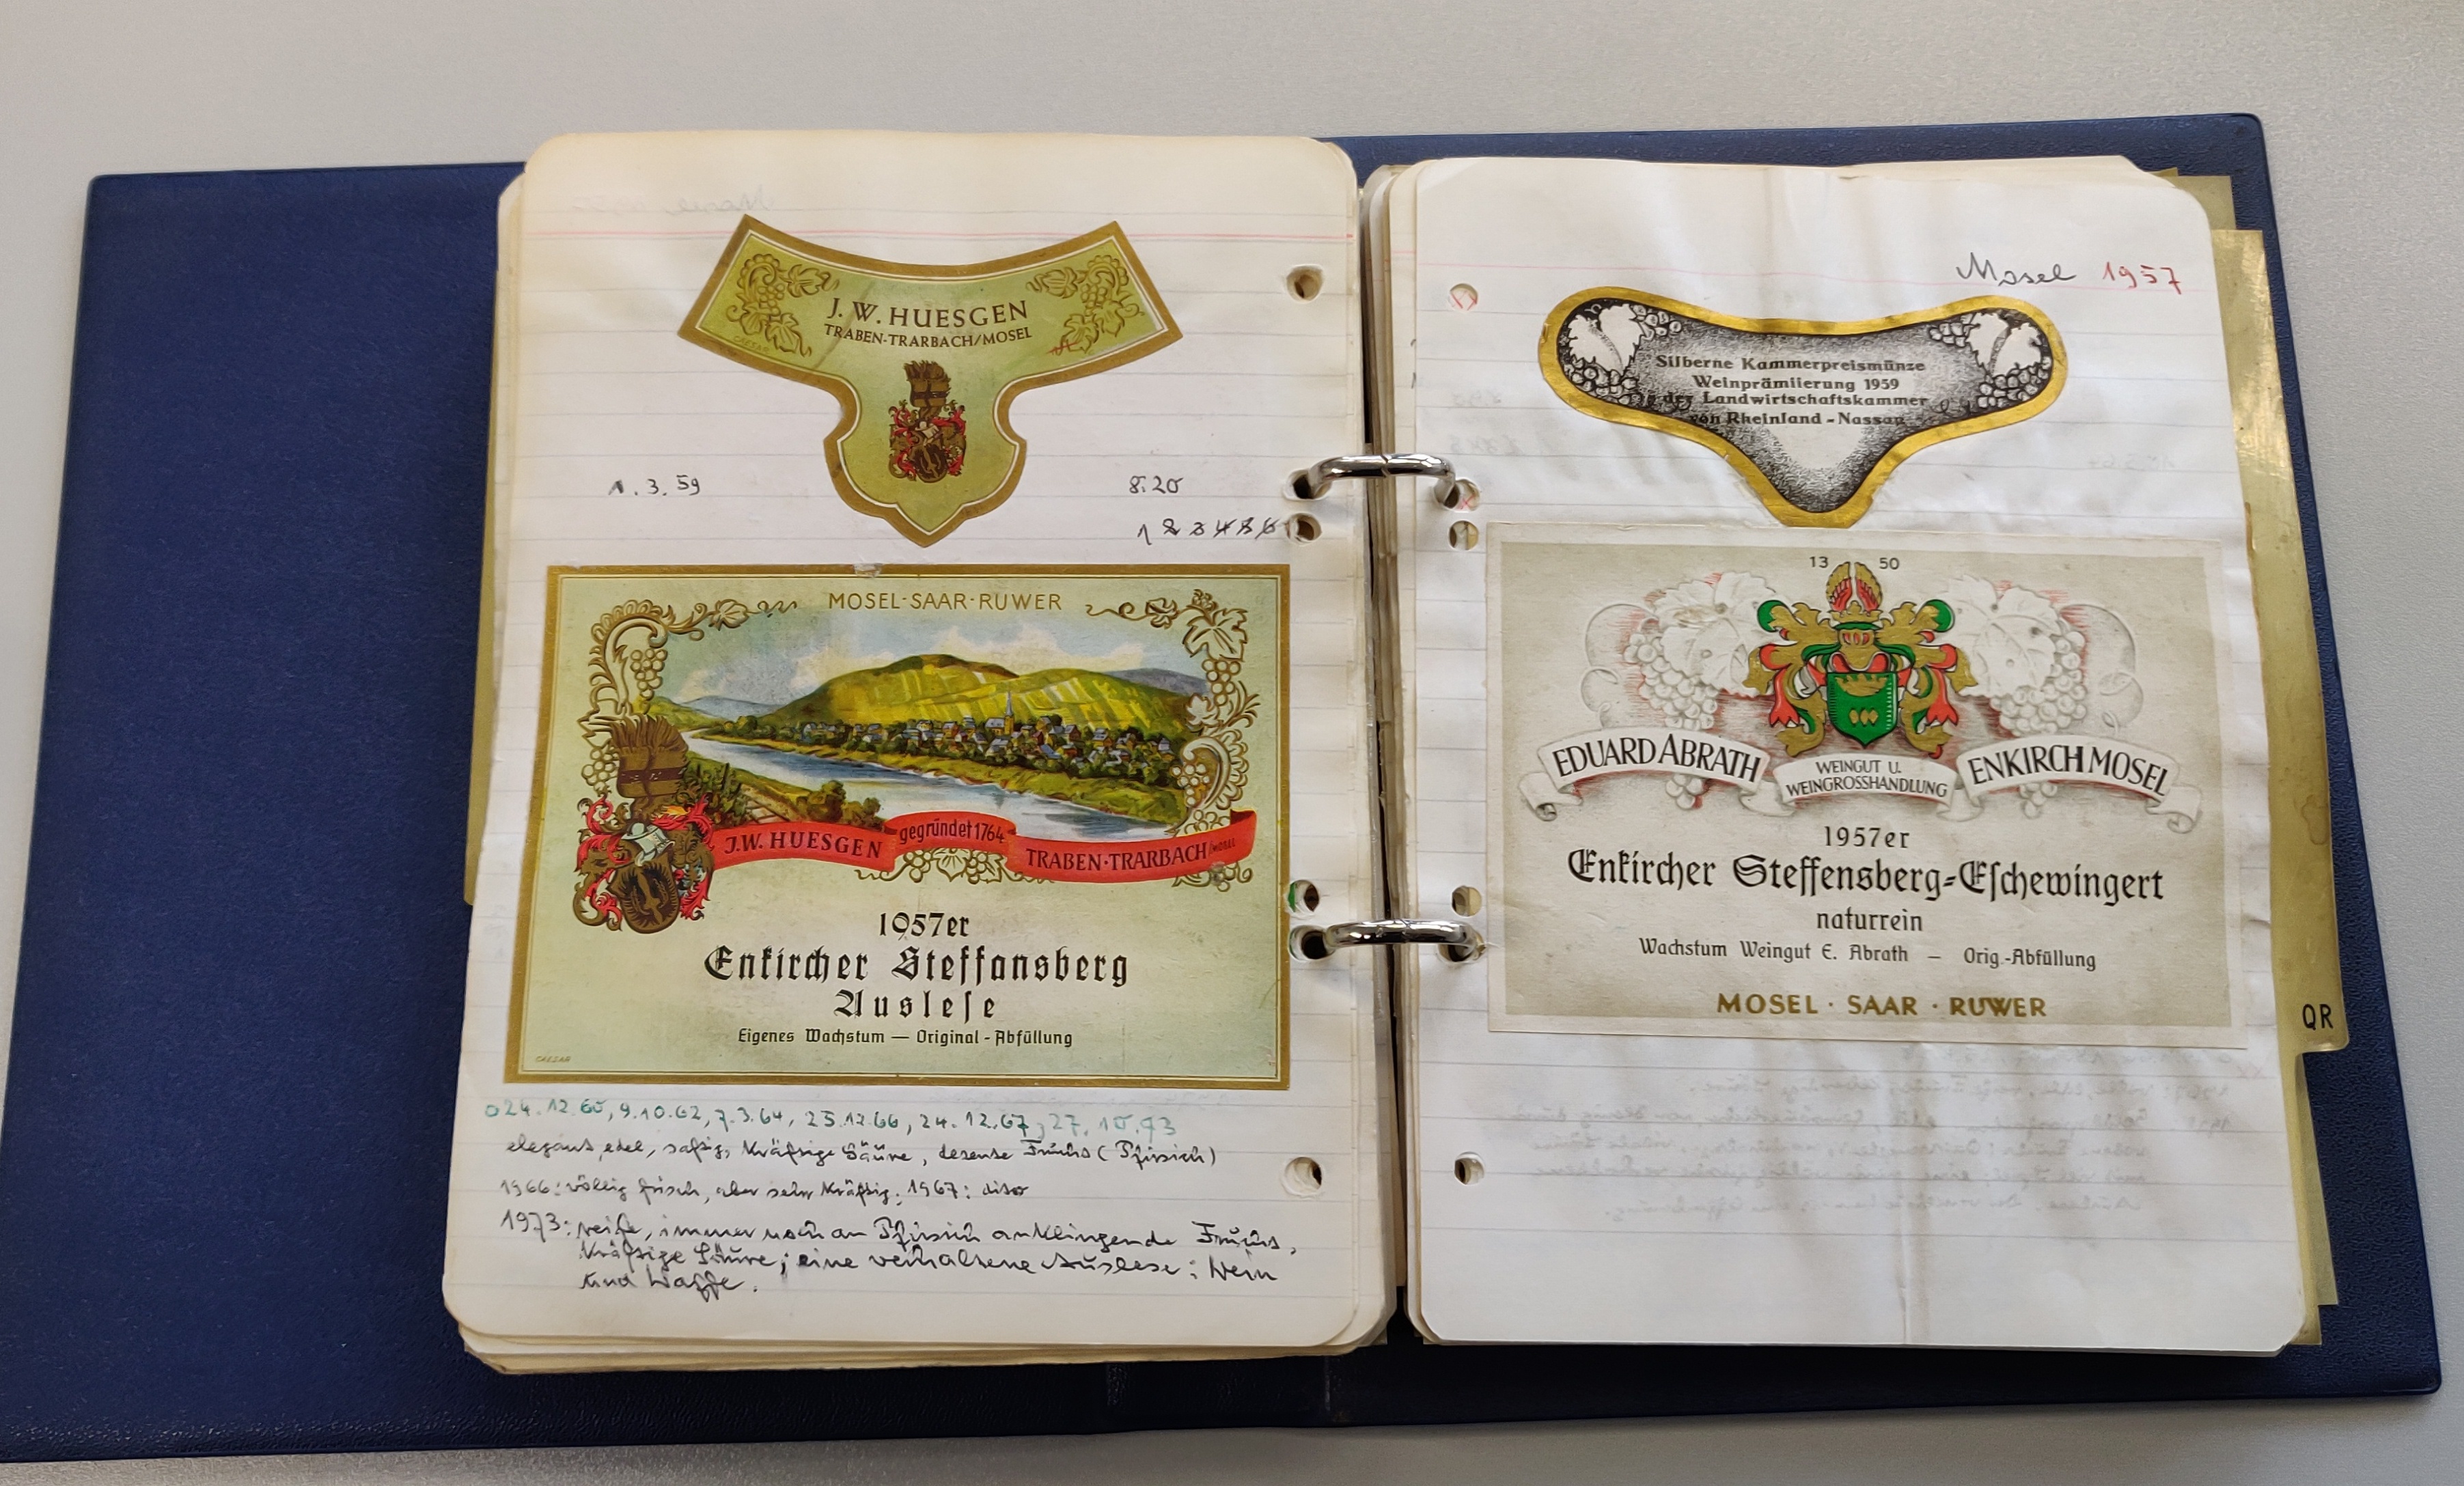 J. W. HUESGEN
TRABEN-TRARBACH/MOSEL
CAESAR
1. 3. 59
8.20
1 2 3 4 5 6
MOSEL-SAAR-RUWER
J.W. HUESGEN gegründet 1764 TRABEN-TRARBACH/MOSEL
1957er
Enkircher Steffansberg
Auslese
Eigenes Wachstum — Original-Abfüllung
CAESAR
24.12.60, 9.10.62, 7.3.64, 25.12.66, 24.12.67, 27.10.73
elegant, edel, saftig, kräftige Säure, dezente Frucht (Pfirsich)
1966: völlig frisch, aber sehr kräftig; 1967: dito
1973: reife, immer noch an Pfirsich anklingende Frucht,
kräftige Säure; eine verhaltene Auslese: Wein
und Waffe.
Mosel 1957
Silberne Kammerpreismünze
Weinprämiierung 1959
der Landwirtschaftskammer
von Rheinland-Nassau
13 50
EDUARD ABRATH WEINGUT U. WEINGROSSHANDLUNG ENKIRCH MOSEL
1957er
Enkircher Steffensberg-Eschewingert
naturrein
Wachstum Weingut E. Abrath — Orig.-Abfüllung
MOSEL · SAAR · RUWER
QR